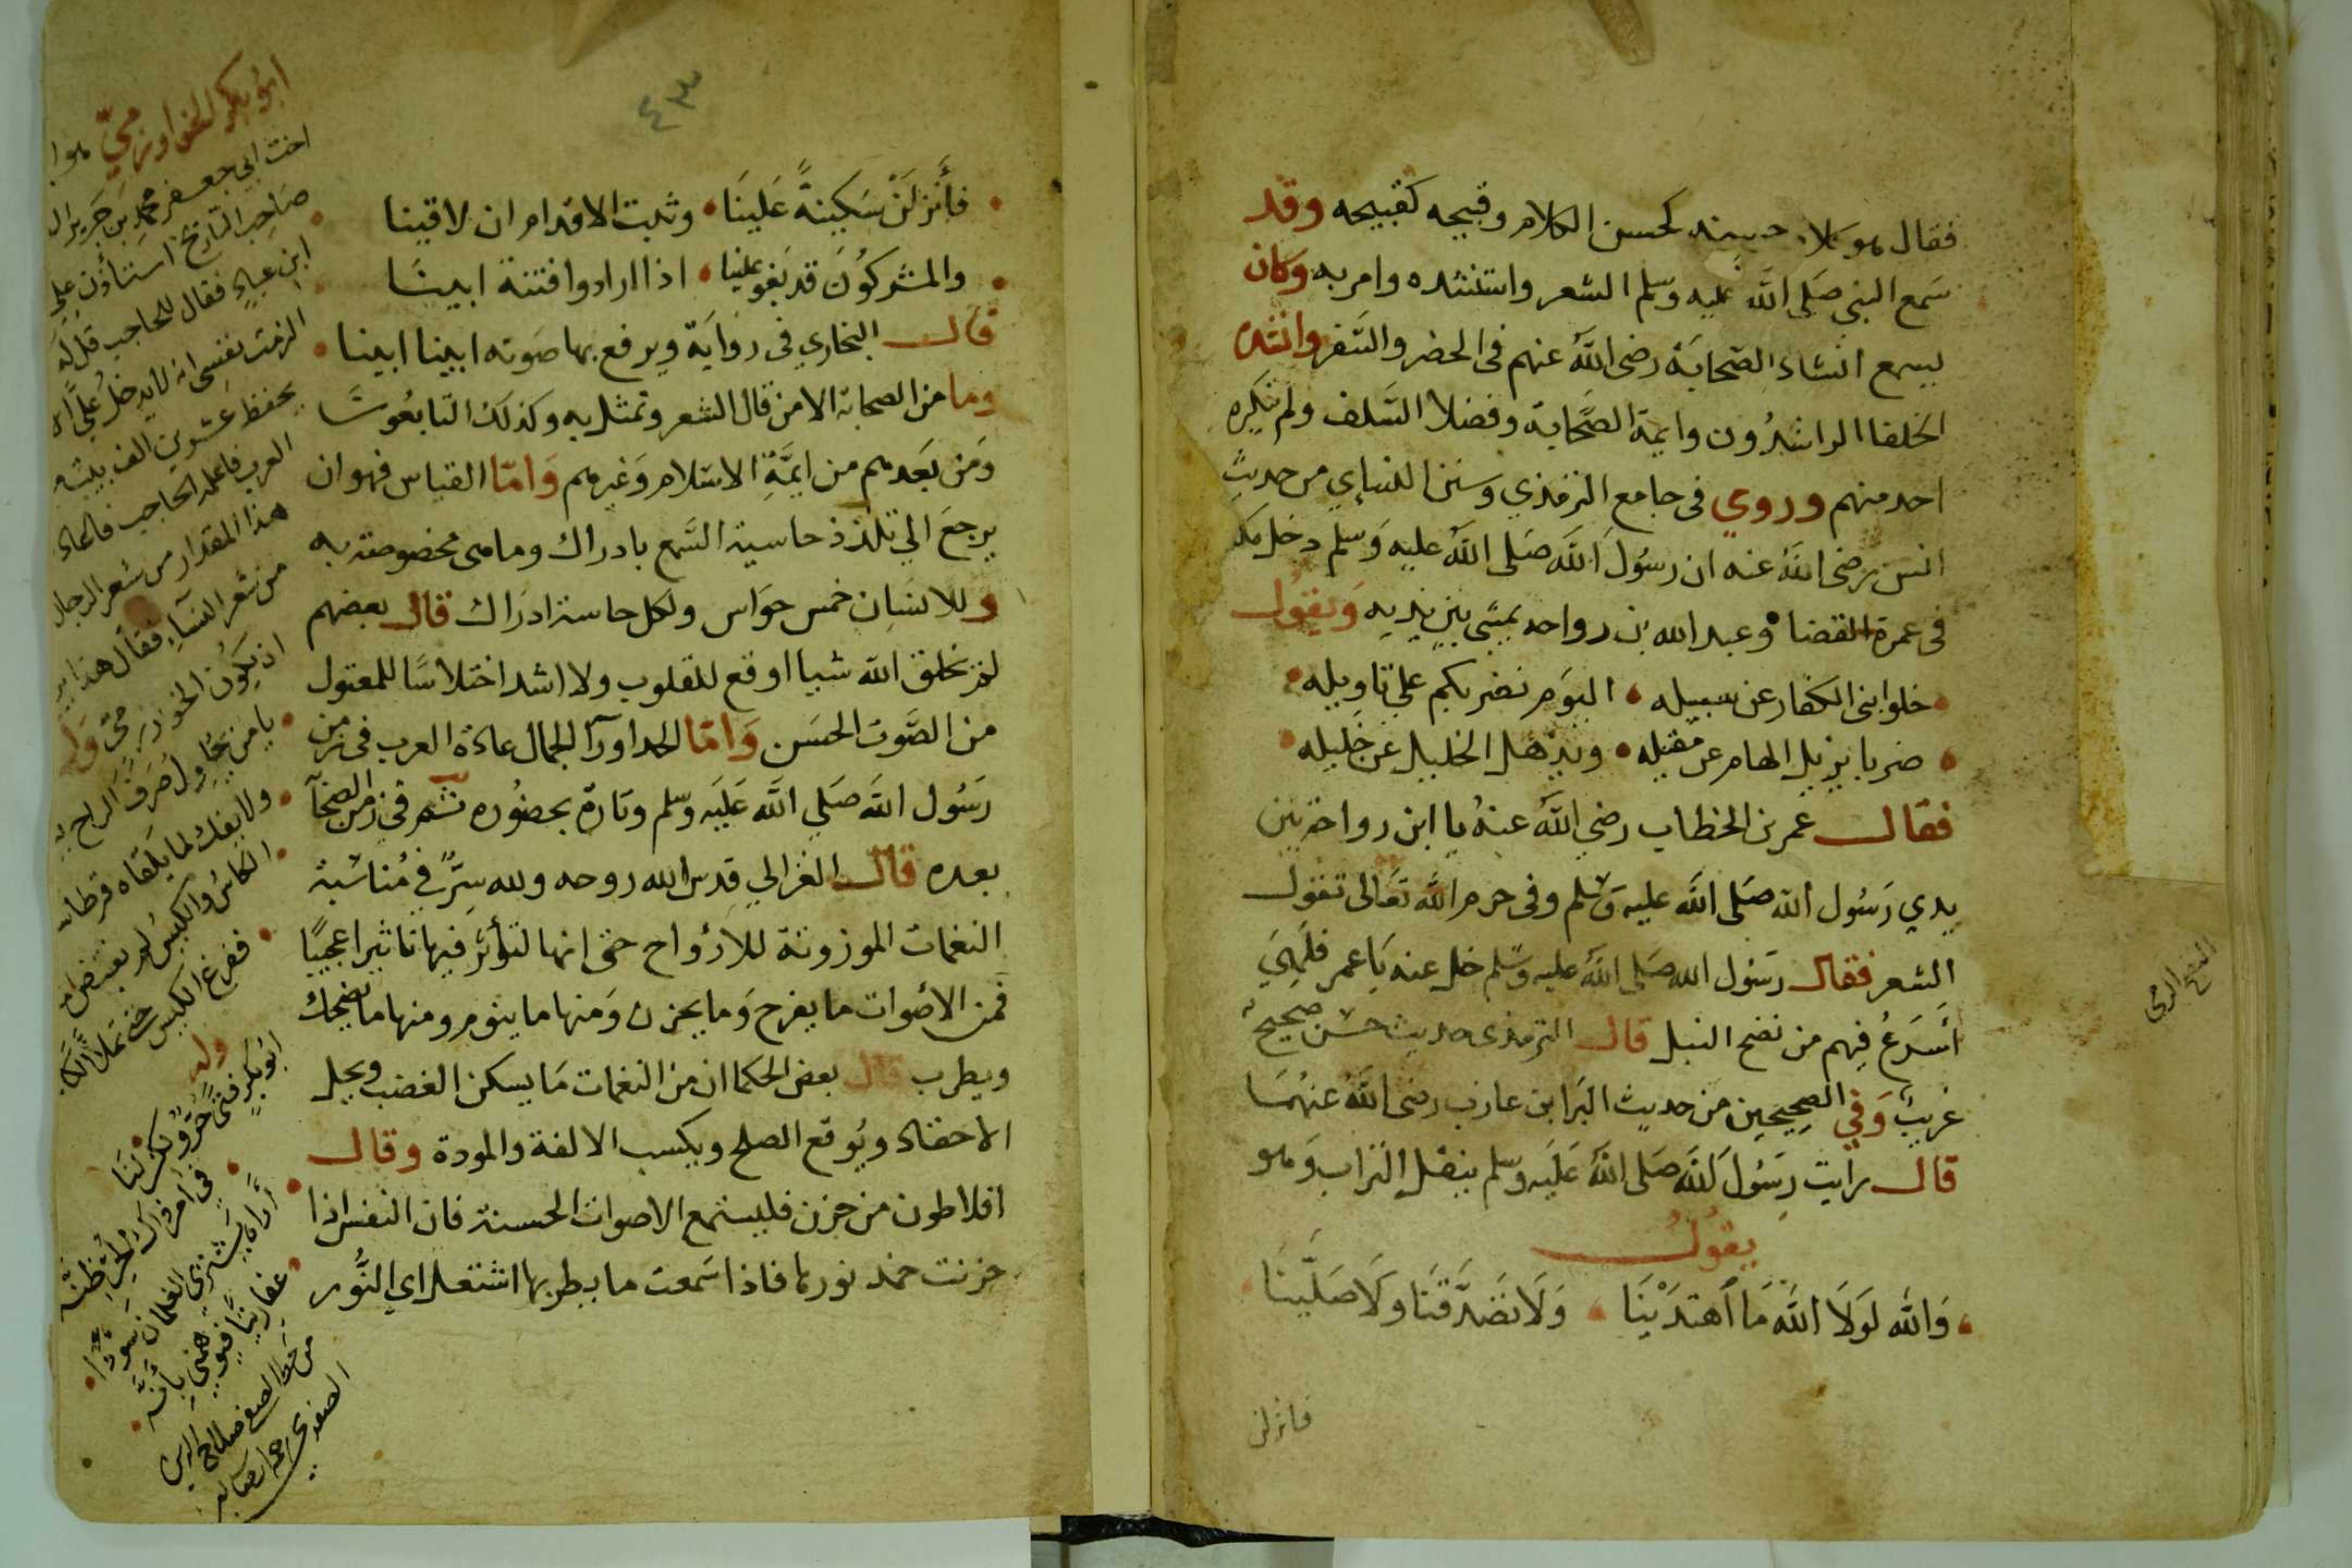 فقال هو كلام حسنه كحسن الكلام وقبيحه كقبيحه وقد
سمع النبي صَلى الله عليه وسلم الشعر واستنشده وامر به وكان
يسمع انشاد الصّحابَة رضى الله عنهم فى الحضر والسَّفر وانشده
الخلفا الراشدُون وايمة الصَّحابة وفضلا السَّلف ولم ينكره
احد منهم وروي فى جامع الترمذي وسنن النساءي من حديثِ
انس رضى الله عنه ان رسُول الله صَلى الله عليه وَسلم دخل مكة
فى عمرة القضا وعبد الله بن رواحه يمشى بين يديه وَيقول
خلوا بنى الكفار عن سبيله • اليَوم نضربكم على تاويله
ضربا يزيل الهام عن مقيله • ويذهل الخليل عن خَليله
فقال عمر بن الخطاب رضي الله عنهُ يا ابن رواحة بين
يدي رَسُول الله صَلى الله عليه وَسلم وفى حرم الله تعَالى تقول
الشعر فقال رسَول الله صَلى الله عليه وسَلم خل عنه يَا عمر فلَهِيَ
أَسرَعُ فِيهم من نضح النبل قال الترمذى حديث حسَن صحيح
غريبٌ وَفي الصحِيحَين من حديث البَرا بن عازب رضى الله عنهُمَا
قال رايت رسُولَ الله صَلى الله عَليَه وسلم ينقل التراب وَهو
يقُولُ
وَالله لَولاَ اللهُ مَا اُهتدَيْنَا • وَلاَ تصَدَّقنَا وَلاَ صَلَّينَا
فانزلن
النضح الرمى
٤٣
فأَنزلَنْ سَكينةً عَلينَا • وثبت الاقدام ان لاقينا
والمشركُونَ قد بَغو علينا • اذا ارادوا فتنة ابينَا
قال البخاري في روايَة ويرفع بها صَوته ابينا ابينا
وما من الصحابة الا من قال الشعر وتمثل به وكذلك التابعُونَ
وَمن بعَدهم من ايمَّةِ الاسَلام وَغيرهم وَامّا القياس فهو ان
يرجعَ الي تلذذ حاسية السَّمع بادراك وما هى مخصوصة به
وللانسَان خمس حوَاس ولكل حاسة ادرَاك قال بعضهم
لم يخلق الله شيا اوقع للقلوب ولا اشد اختلاسًا للعقول
من الصَّوت الحسَن وَامّا الحدا ورآ الجمال عادة العرب فى زمن
رَسُول الله صَلي الله عَليَه وسلم وتارة بحضُوره ثم فى زمن الصحآبة
بعده قال الغزالي قدس الله روحه ولله سِرٌّ في مُناسَبة
النغمات الموزونة للارواح حتى انها لتؤثر فيها تاثيرا عجيبًا
فمن الأصْوات ما يفرح وَما يحزن وَمنها ما ينوم ومنها ما يضحك
ويطرب قال بعض الحكما ان من النغمات مَا يسكن الغضب ويحل
الاحقاد ويُوقع الصلح ويكسب الالفة والمودة وقال
افلاطون من حزن فليستمع الاصوات الحسنة فان النفس اذا
حزنت خمد نورها فاذا سَمعت ما يطربها اشتعل اي النُّور
ابُو بكر الخوارزمىّ هو ابن
اخت ابى جعفر محمد بن جَرير ال
صَاحب التاريخ استأذن على
ابن عباد فقال للحاجب قل له
الزمت نفسى انه لا يدخل علىّ
يحفظ عشرين الف بيت
العرب فاعلمه الحاجب فقال
هذا المقدار من شعر الرجال
من شعر النسآء فقال هذا
ان يكون الخوارزمىّ وله
يا من يحاول صرفَ الراح
ولا يفك لما يلقاه قرطاسا
الكاسُ والكيس لم
ففرغ الكيس حتى تملأ الكا
وله
ابُو بكرٍ
أراه يشتري الغلمان سُودًا
من خط الصفى صلاح الدين
الصفدى رحمه الله تعالى